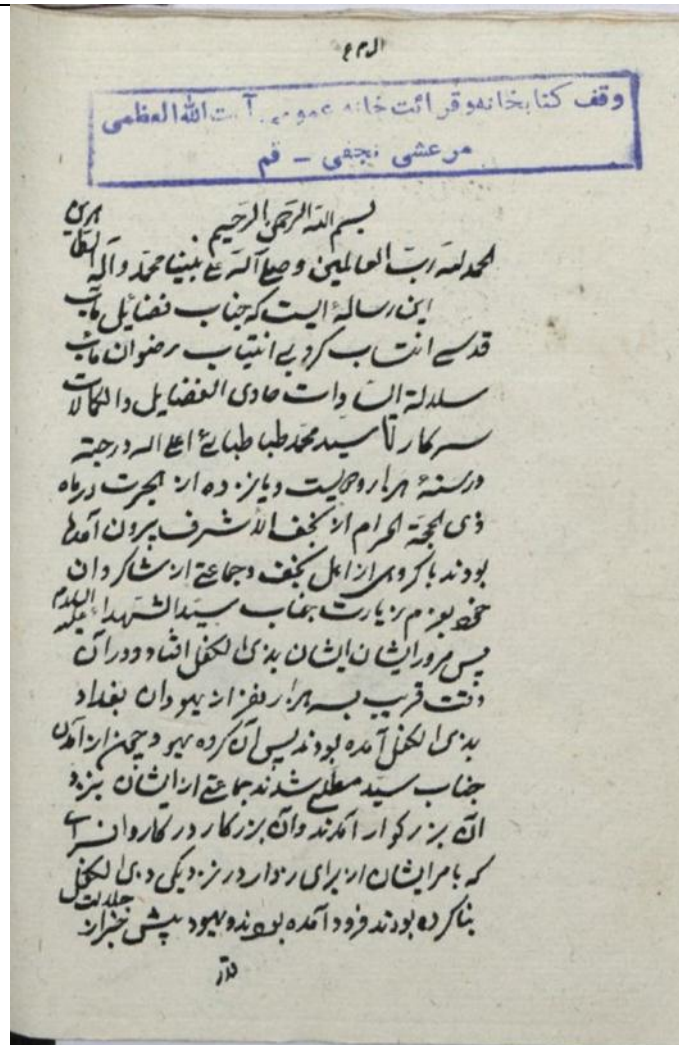 وقف کتابخانه و قرائت خانه عمومی آیت الله العظمی
مرعشی نجفی - قم
بسم الله الرحمن الرحیم
الحمد لله رب العالمین و صلی الله علی نبینا محمد و آله
این رساله ایست که جناب فضایل مآب
قدسی انتساب کروبی انتیاب رضوان مآب
سلالة السادات حاوی الفضایل و الکمالات
سرکار سید محمد طباطبائی اعلی الله درجته
در سنهٔ هزار و دویست و یازده از هجرت در ماه
ذی الحجة الحرام از نجف الاشرف بیرون آمده
بودند با گروهی از اهل نجف و جماعتی از شاکردان
خود بعزم زیارت جناب سید الشهداء علیه السلام
پس مرور ایشان بذی الکفل افتاد و در آن
وقت قریب بسه هزار نفر از یهودان بغداد
بذی الکفل آمده بودند پس آن کروه یهود چون از آمدن
جناب سید مطلع شدند جماعتی از ایشان بنزد
آن بزرکوار آمدند و آن بزرکوار در کاروانسرای
که بامر ایشان از برای زوار در نزدیکی ذی الکفل
بنا کرده بودند فرود آمده بودند و یهود پیش خبر از جلالت
قدر